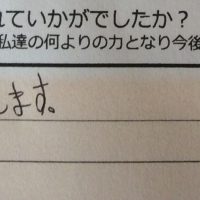 れていかがでしたか？
私達の何よりの力となり今後
します。